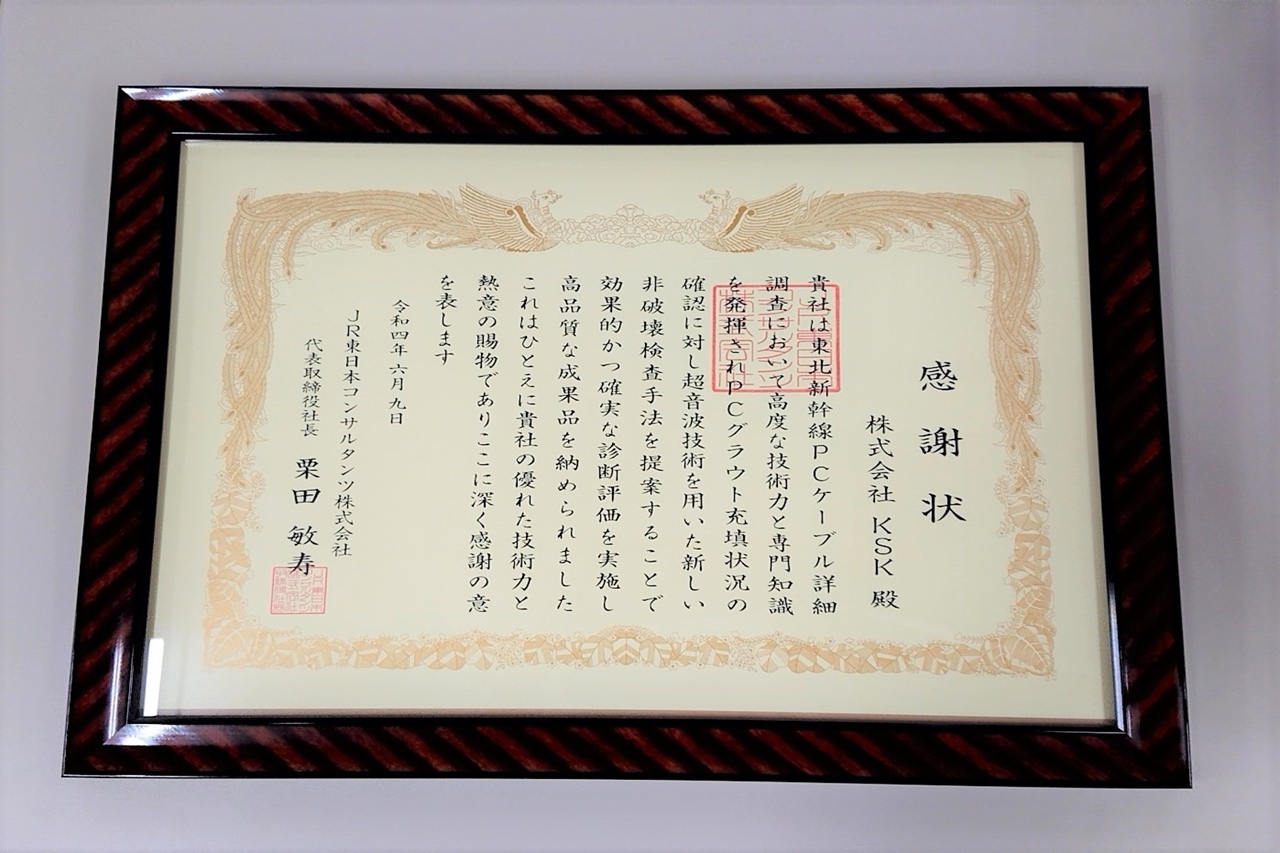 感謝状
株式会社 KSK 殿
貴社は東北新幹線PCケーブル詳細
調査において高度な技術力と専門知識
を発揮されPCグラウト充填状況の
確認に対し超音波技術を用いた新しい
非破壊検査手法を提案することで
効果的かつ確実な診断評価を実施し
高品質な成果品を納められました
これはひとえに貴社の優れた技術力と
熱意の賜物でありここに深く感謝の意
を表します
令和四年六月九日
JR東日本コンサルタンツ株式会社
代表取締役社長 栗田 敏寿